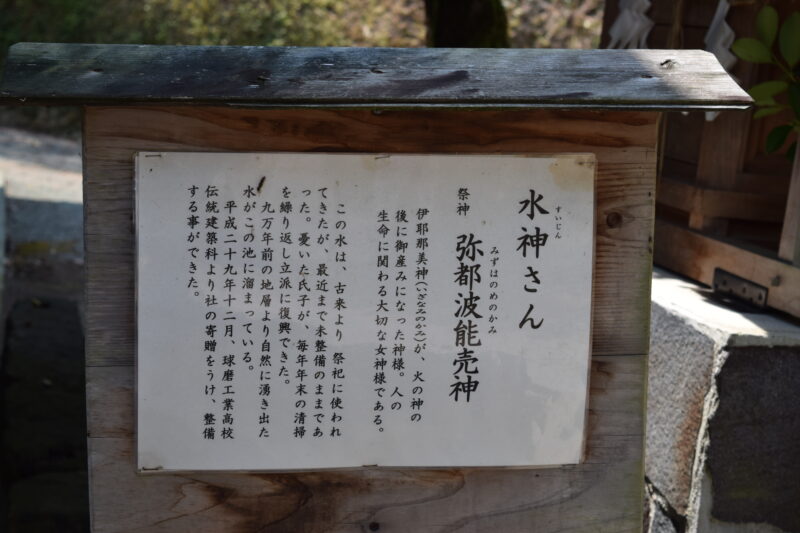 すいじん
水神さん
みずはのめのかみ
祭神 弥都波能売神
伊耶那美神(いざなみのかみ)が、火の神の
後に御産みになった神様。人の
生命に関わる大切な女神様である。
この水は、古来より 祭祀に使われ
てきたが、最近まで未整備のままであ
った。憂いた氏子が、毎年年末の清掃
を繰り返し立派に復興できた。
九万年前の地層より自然に湧き出た
水がこの池に溜まっている。
平成二十九年十二月、球磨工業高校
伝統建築科より社の寄贈をうけ、整備
する事ができた。